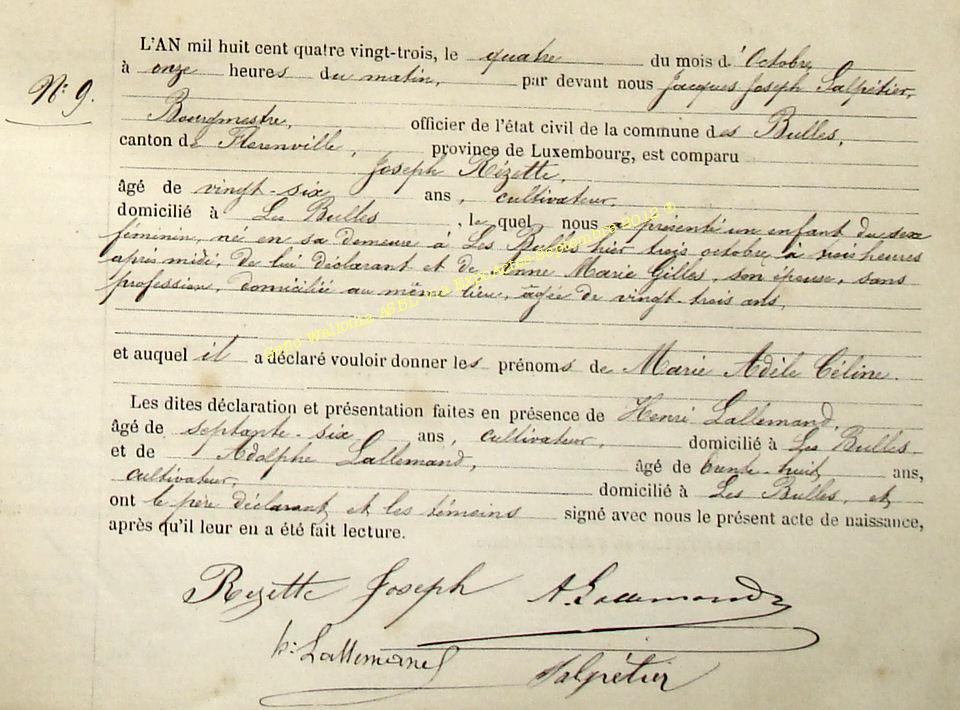 L'AN mil huit cent quatre vingt-trois, le quatre du mois d'Octobre,
à onze heures du matin, par devant nous Jacques Joseph Salpétier,
N: 9.
Bourgmestre, officier de l'état civil de la commune des Bulles,
canton de Florenville, province de Luxembourg, est comparu
Joseph Rizette,
âgé de vingt-six ans, cultivateur,
domicilié à Les Bulles, le quel nous a présenté un enfant du sexe
féminin, né en sa demeure à Les Bulles hier trois octobre, à trois heures
après midi, de lui déclarant et de Anne Marie Gilles, son épouse, sans
profession, domiciliée au même lieu, âgée de vingt-trois ans,
et auquel il a déclaré vouloir donner les prénoms de Marie Adèle Céline.
Les dites déclaration et présentation faites en présence de Henri Lallemand,
âgé de septante-six ans, cultivateur, domicilié à Les Bulles
et de Adolphe Lallemand, âgé de trente-huit ans,
cultivateur, domicilié à Les Bulles, et
ont le père déclarant et les témoins signé avec nous le présent acte de naissance,
après qu'il leur en a été fait lecture.
Rizette Joseph A. Lallemand
h: Lallemand Salpétier